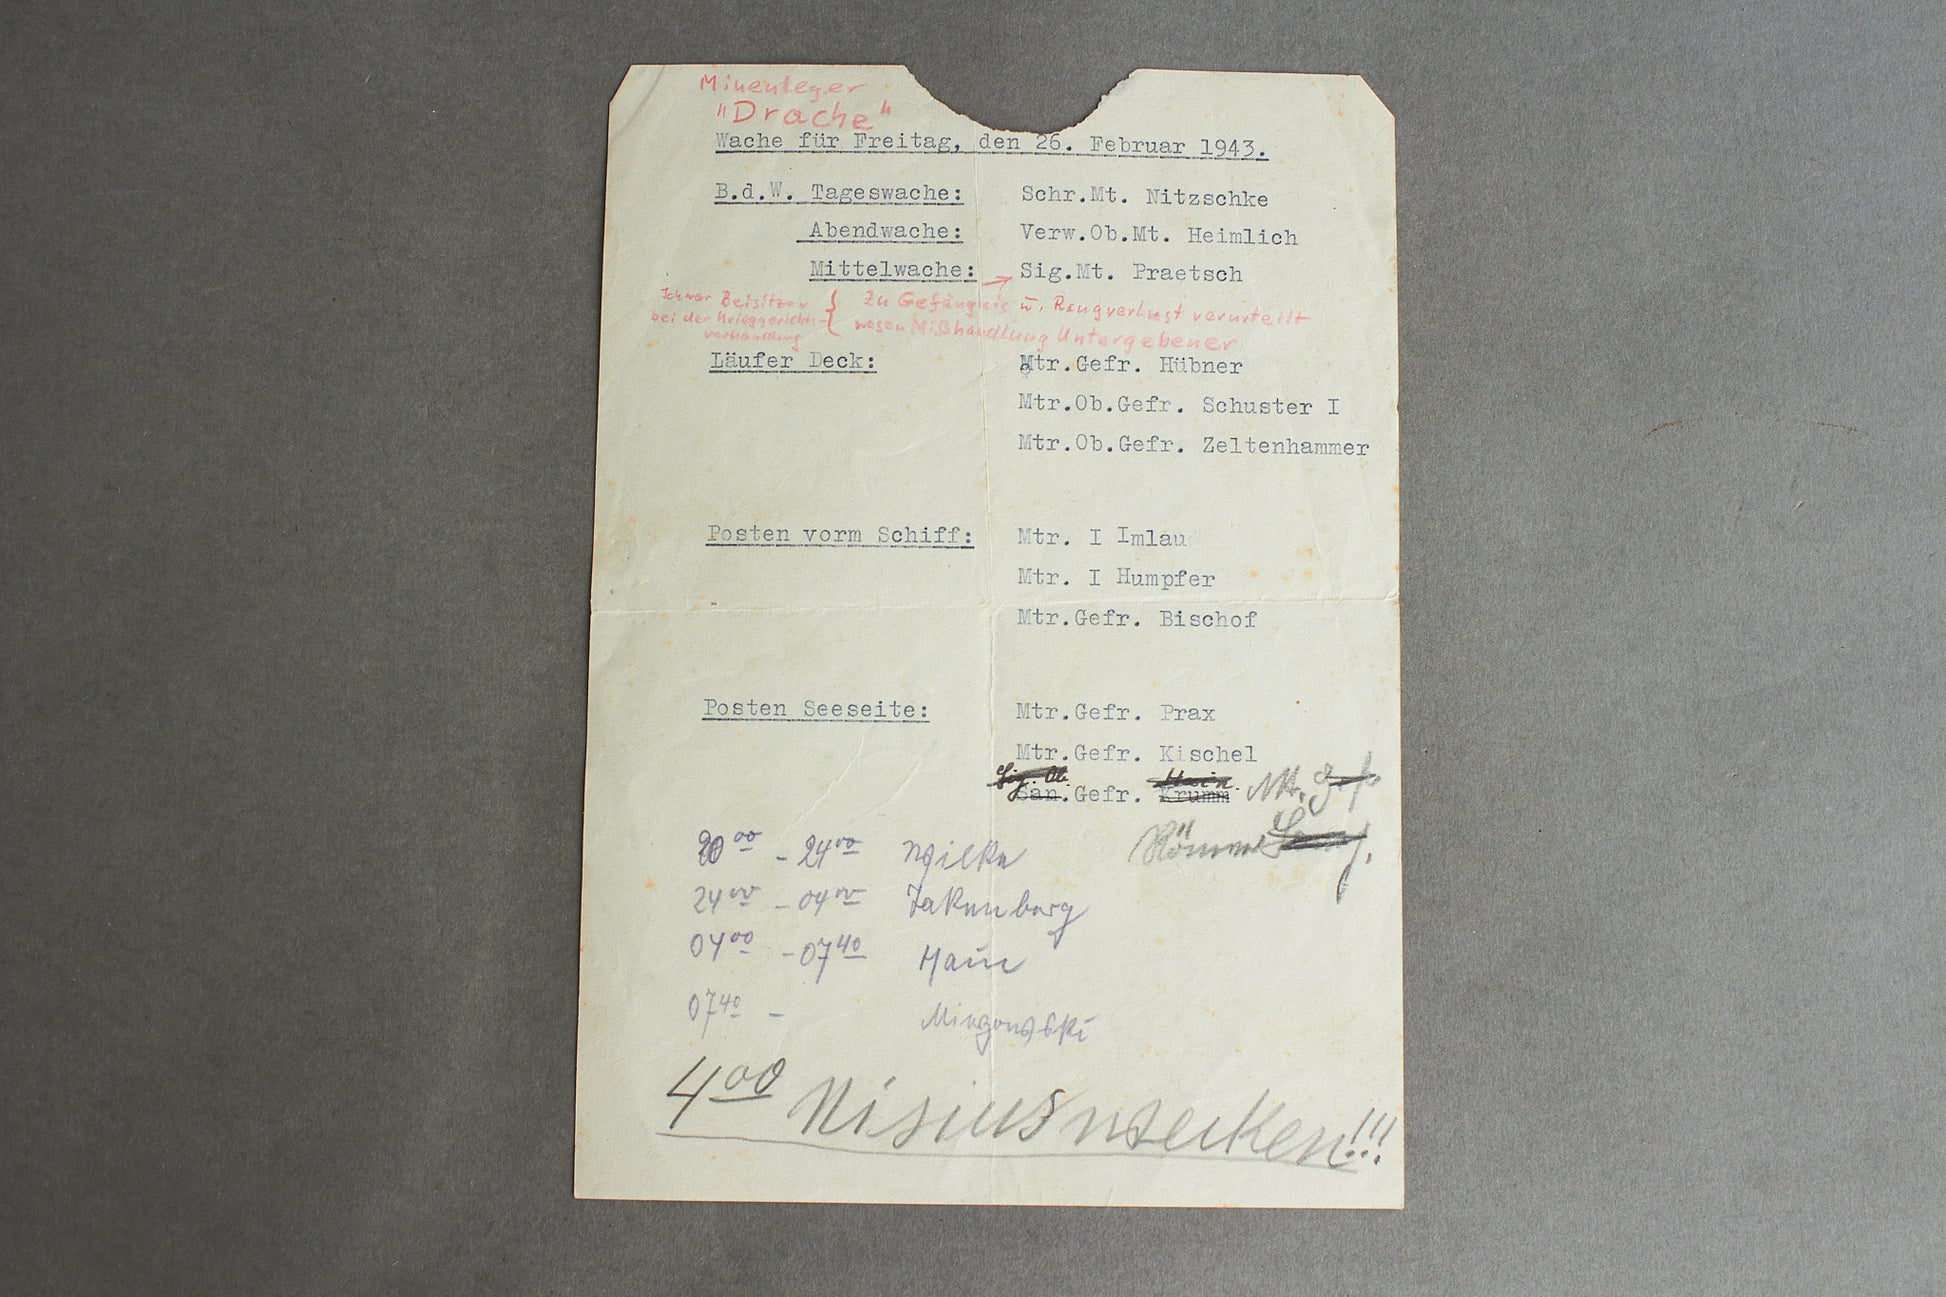 Minenleger
"Drache"
Wache für Freitag, den 26. Februar 1943.
B.d.W. Tageswache: Schr.Mt. Nitzschke
Abendwache: Verw.Ob.Mt. Heimlich
Mittelwache: → Sig.Mt. Praetsch
Ich war Beisitzer { zu Gefängnis u. Rangverlust verurteilt
bei der Kriegsgerichts-
wegen Mißhandlung Untergebener
verhandlung
Läufer Deck: Mtr.Gefr. Hübner
Mtr.Ob.Gefr. Schuster I
Mtr.Ob.Gefr. Zeltenhammer
Posten vorm Schiff: Mtr. I Imlau
Mtr. I Humpfer
Mtr.Gefr. Bischof
Posten Seeseite: Mtr.Gefr. Prax
Mtr.Gefr. Kischel
Sig. Ob. Hain
San.Gefr. Krumm Mtr. Gefr.
20⁰⁰ - 24⁰⁰ Wilke
24⁰⁰ - 04⁰⁰ Jakenberg
04⁰⁰ - 07⁴⁰ Hain
07⁴⁰ - Mingowski
4⁰⁰ Nisius wecken!!!